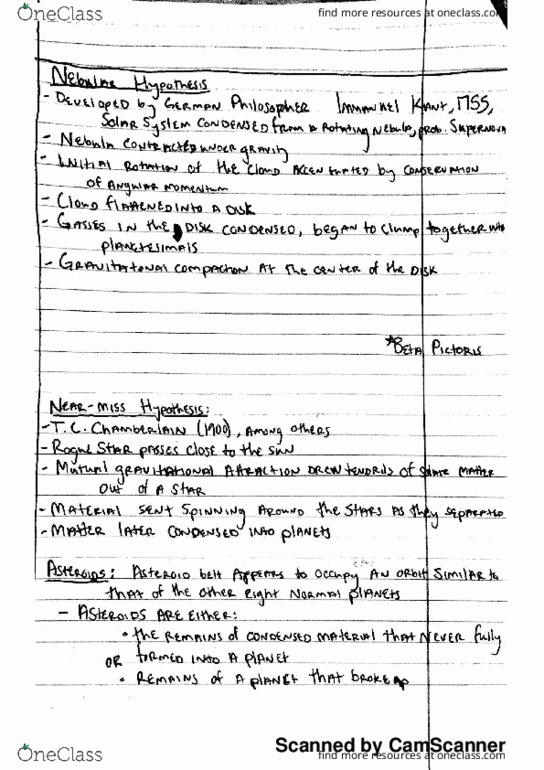 OneClass
find more resources at oneclass.com
Nebular Hypothesis
- Developed by German Philosopher Immanuel Kant, 1755,
Solar System condensed from a rotating nebula, prob. Supernova
- Nebula contracted under gravity
- Initial rotation of the cloud accentuated by conservation
of angular momentum
- Cloud flattened into a disk
- Gasses in the disk condensed, began to clump together into
planetesimals
- Gravitational compaction at the center of the disk
*Beta Pictoris
Near-miss Hypothesis:
- T.C. Chamberlain (1900), among others
- Rogue star passes close to the sun
- Mutual gravitational attraction drew tendrils of solar matter
out of a star
- Material sent spinning around the stars as they separated
- Matter later condensed into planets
Asteroids: Asteroid belt appears to occupy an orbit similar to
that of the other eight normal planets
- Asteroids are either:
• the remains of condensed material that never fully
or formed into a planet
• Remains of a planet that broke up
Scanned by CamScanner
OneClass
find more resources at oneclass.com